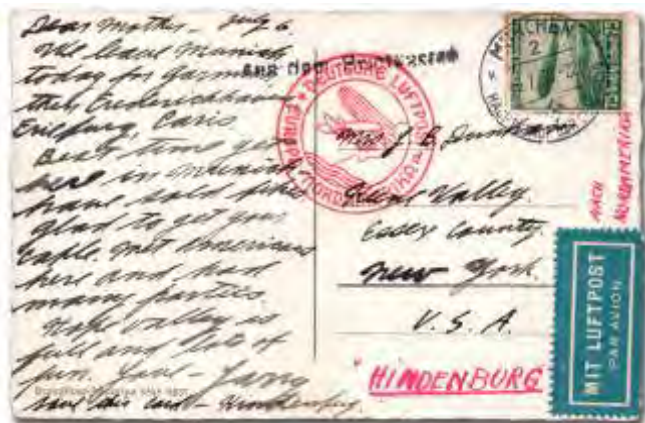 Dear Mother - July 6
We leave Munich
today for Garmisch
then
Best time yet
here in Munich
have sold
glad to get your
cable. Met Americans
here and had
many parties.
Hope Valley is
full and lots of
fun. Love -
Save this card - Hindenburg.
Aus dem Briefkasten
DEUTSCHE LUFTPOST
EUROPA NORDAMERIKA
MÜNCHEN
2
Mrs. J. B. Dunham
Keene Valley.
Essex County.
New York.
U. S. A.
NACH
NORDAMERIKA
HINDENBURG
MIT LUFTPOST
PAR AVION